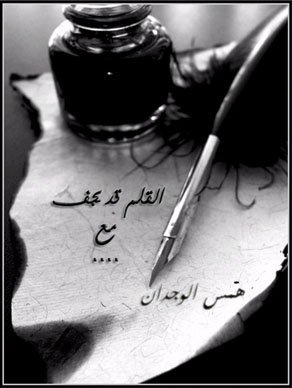 القلم قد يجف
مع
....
همس الوجدان